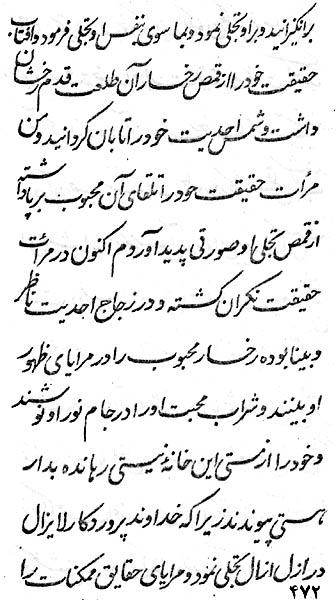 برانگیزانید و بر او تجلی نمود و بما سوی بنفس او تجلی فرمود و آفتاب
حقیقت خود را از قمص رخسار آن طلعت قدم رخشان
داشت و شمس احدیت خود را تابان گردانید و من
مرآت حقیقت خود را تلقای آن محبوب برپا داشته
از قمص تجلی او صورتی پدید آوردم اکنون در مرآت
حقیقت نگران گشته و در زجاج احدیت ناظر
و بینا بوده رخسار محبوب را در مرایای ظهور
او بینند و شراب محبت او را در جام نور او نوشند
و خود را از مستی این خانه نیستی رهانده بدار
هستی پیوندند زیرا که خداوند پروردگار لایزال
در ازل ازال تجلی نمود و مرایای حقایق ممکنات را
۴۷۲